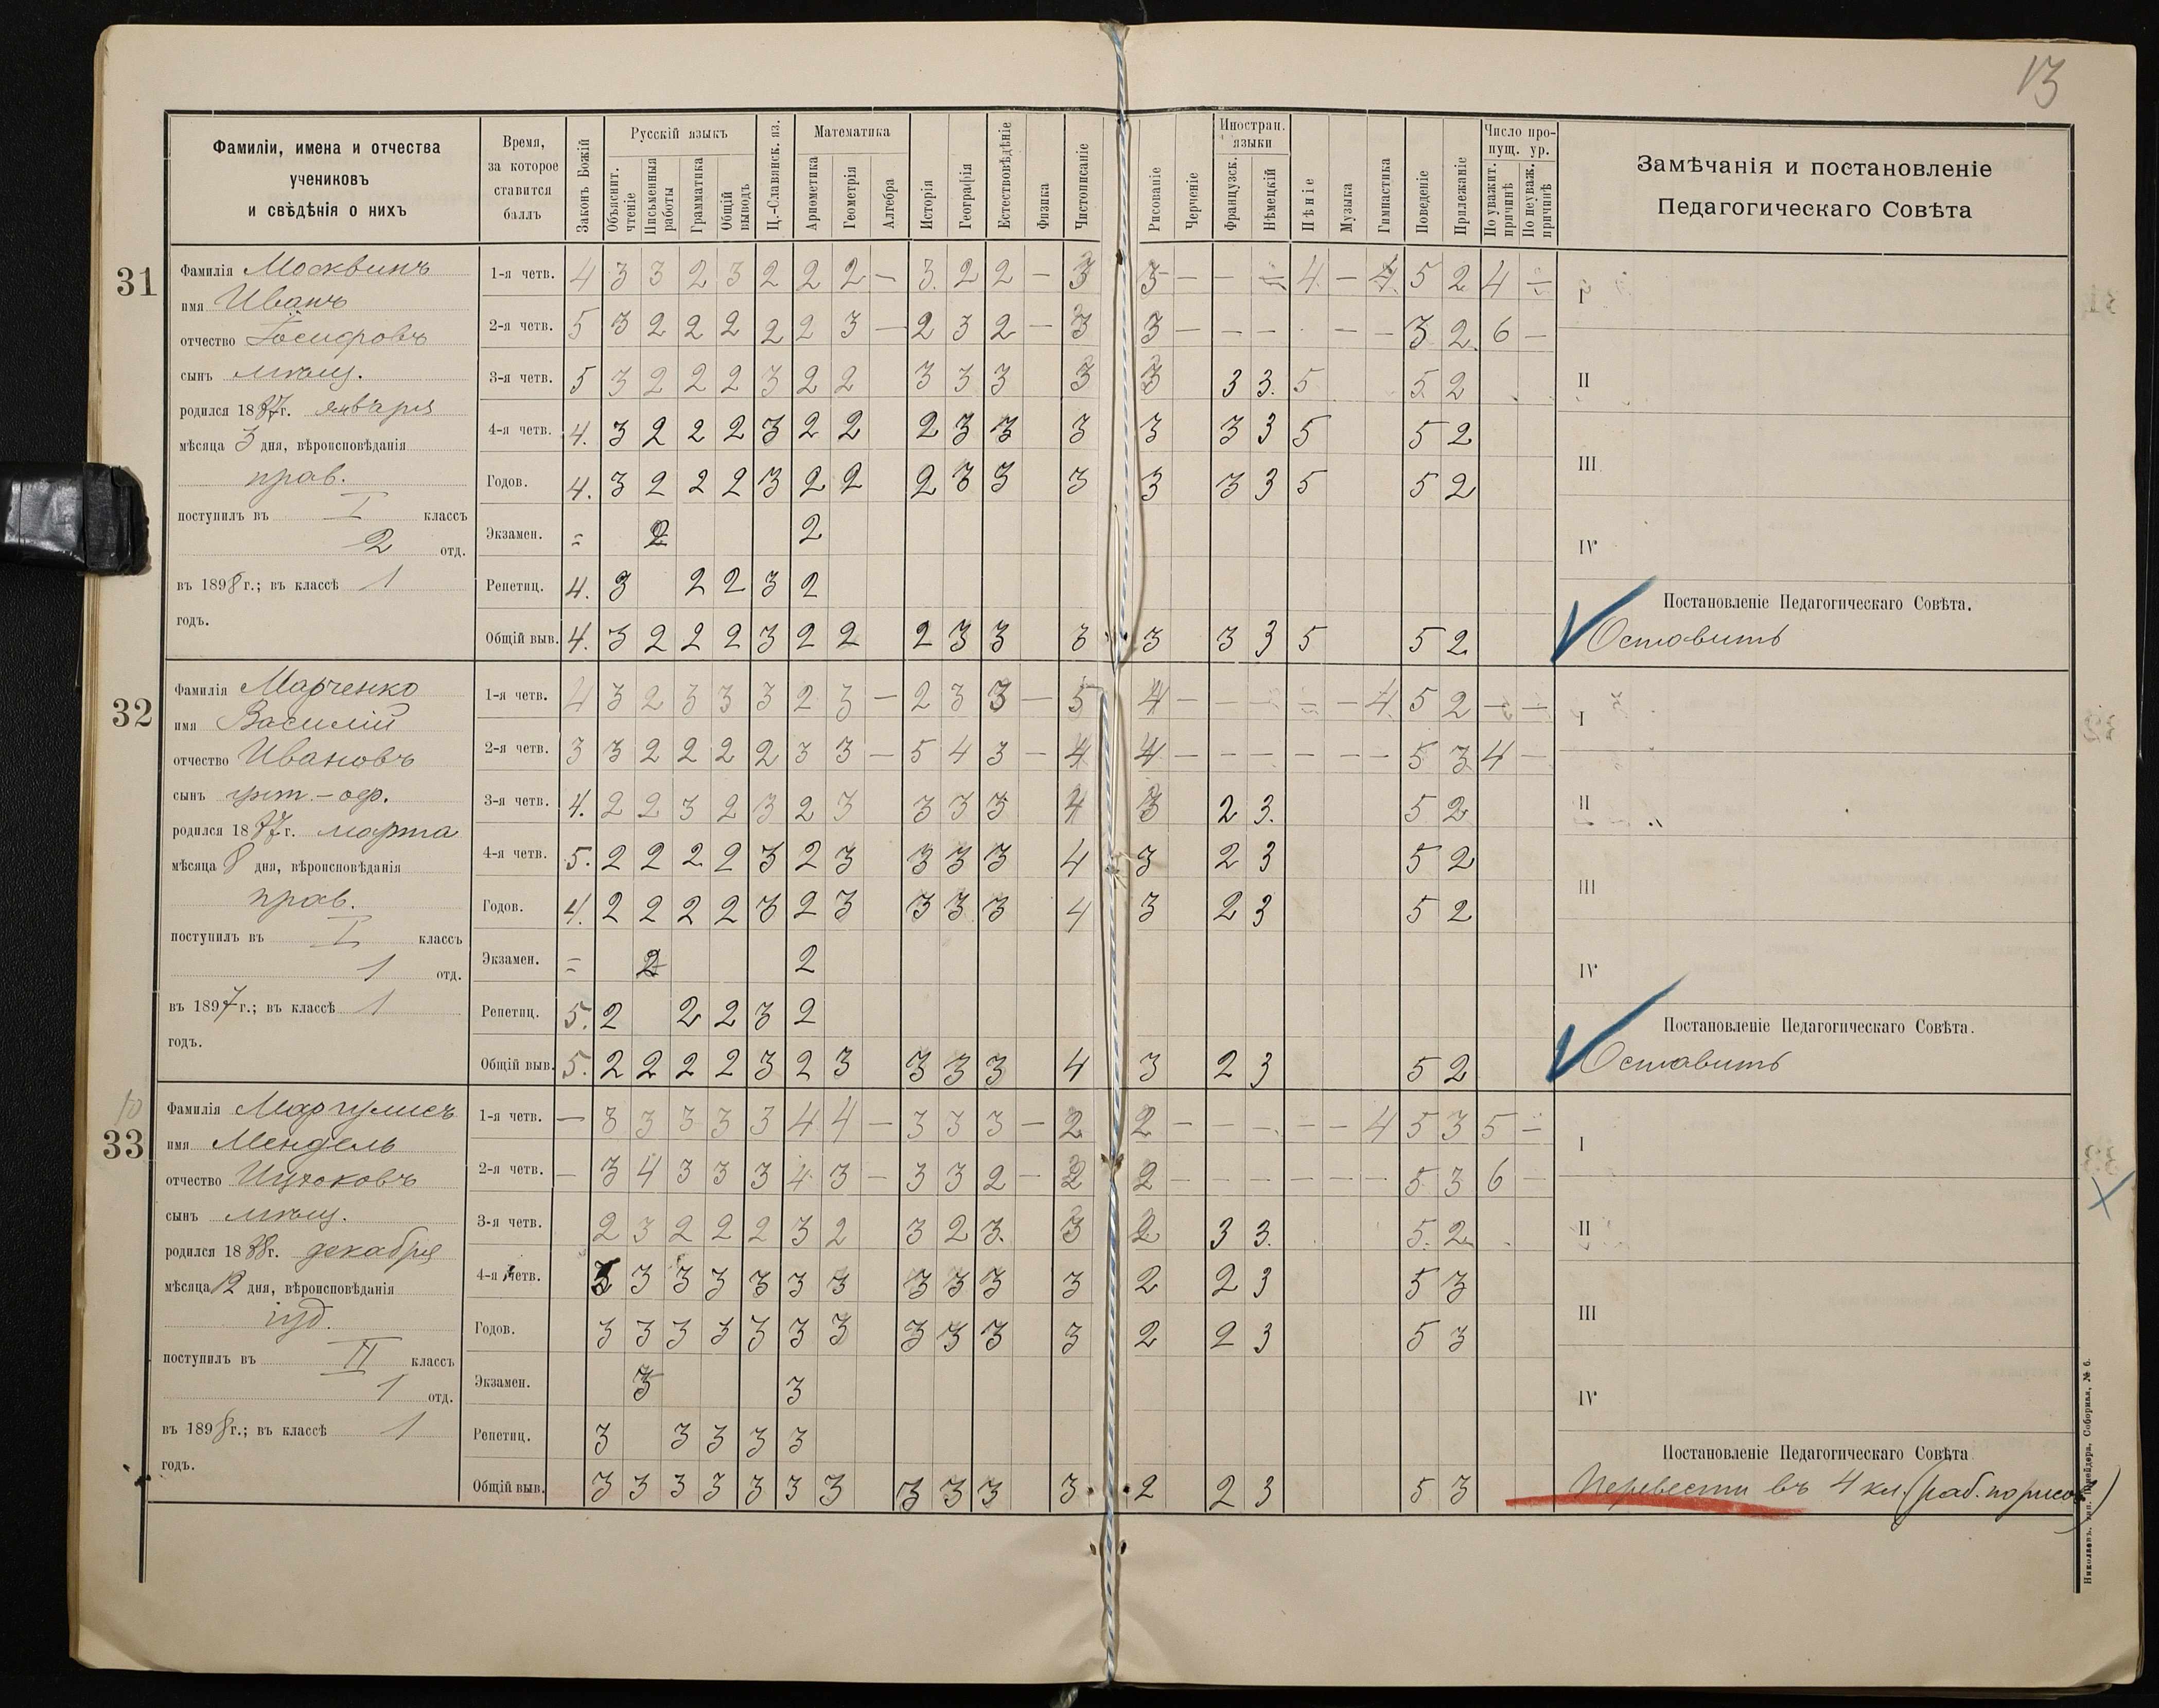 13
Фамиліи, имена и отчества
учениковъ
и свѣдѣнія о нихъ
Время,
за которое
ставится
баллъ
Законъ Божій
Русскій языкъ
Объяснит. чтеніе
Письменныя работы
Грамматика
Общій выводъ
Ц.-Славянск. яз.
Математика
Ариѳметика
Геометрія
Алгебра
Исторія
Географія
Естествовѣдѣніе
Физика
Чистописаніе
Рисованіе
Черченіе
Иностран. языки
Французск.
Нѣмецкій
Пѣніе
Музыка
Гимнастика
Поведеніе
Прилежаніе
Число про-
пущ. ур.
По уважит. причинѣ
По неуваж. причинѣ
Замѣчанія и постановленіе
Педагогическаго Совѣта
31
Фамилія Москвинъ
имя Иванъ
отчество Іосифовъ
сынъ мѣщ.
родился 1887г. января
мѣсяца 3 дня, вѣроисповѣданія
прав.
поступилъ въ I классъ
2 отд.
въ 1898 г.; въ классѣ 1
годъ.
1-я четв. 4 3 3 2 3 2 2 2 — 3. 2 2 — 3 3 — — — 4 — 4 5 2 4 —
2-я четв. 5 3 2 2 2 2 2 3 — 2 3 2 — 3 3 — — — — — 3 2. 6 —
3-я четв. 5 3 2 2 2 3 2 2 3 3 3 3 3 3 3. 5 5 2
4-я четв. 4. 3 2 2 2 3 2 2 2 3 3 3 3 3 3 5 5 2
Годов. 4. 3 2 2 2 3 2 2 2 3 3 3 3 3 3 5 5 2
Экзамен. = 2 2
Репетиц. 4. 3 2 2 3 2
Общій выв. 4. 3 2 2 2 3 2 2 2 3 3 3 3 3 3 5 5 2
I
II
III
IV
Постановленіе Педагогическаго Совѣта.
Оставить
32
Фамилія Марченко
имя Василій
отчество Ивановъ
сынъ унт.-оф.
родился 1887г. марта
мѣсяца 8 дня, вѣроисповѣданія
прав.
поступилъ въ I классъ
1 отд.
въ 1897 г.; въ классѣ 1
годъ.
1-я четв. 4 3 2 3 3 3 2 3 — 2 3 3 — 5 4 — — — — — 4 5 2 — —
2-я четв. 3 3 2 2 2 2 3 3 — 5 4 3 — 4 4 — — — — — — 5 3 4 —
3-я четв. 4. 2 2 3 2 3 2 3 3 3 3 4 3 2 3. 5 2
4-я четв. 5. 2 2 2 2 3 2 3 3 3 3 4 3 2 3 5 2
Годов. 4. 2 2 2 2 3 2 3 3 3 3 4 3 2 3 5 2
Экзамен. = 2 2
Репетиц. 5. 2 2 2 3 2
Общій выв. 5. 2 2 2 2 3 2 3 3 3 3 4 3 2 3 5 2
I
II
III
IV
Постановленіе Педагогическаго Совѣта.
Оставить
10
33
Фамилія Маргулисъ
имя Мендель
отчество Ицковъ
сынъ мѣщ.
родился 1888г. декабря
мѣсяца 12 дня, вѣроисповѣданія
іуд.
поступилъ въ II классъ
1 отд.
въ 1898 г.; въ классѣ 1
годъ.
1-я четв. — 3 3 3 3 3 4 4 — 3 3 3 — 2 2 — — — — — 4 5 3 5 —
2-я четв. — 3 4 3 3 3 4 3 — 3 3 2 — 2 2 — — — — — — 5 3 6 —
3-я четв. 2 3 2 2 2 3 2 3 2 3. 3 2 3 3. 5. 2
4-я четв. 3 3 3 3 3 3 3 3 3 3 3 2 2 3 5 3
Годов. 3 3 3 3 3 3 3 3 3 3 3 2 2 3 5 3
Экзамен. 3 3
Репетиц. 3 3 3 3 3
Общій выв. 3 3 3 3 3 3 3 3 3 3 3 2 2 3 5 3
I
II
III
IV
Постановленіе Педагогическаго Совѣта
Перевести въ 4 кл. (раб. по рисов)
Николаевъ, тип. Шнейдера, Соборная, № 6.